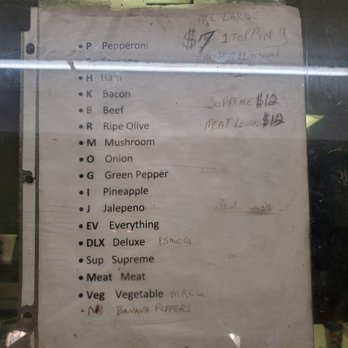 ALL LARGE
$7 1 TOPPING
• P Pepperoni
Sausage
• H Ham
• K Bacon
• B Beef
SUPREME $12
• R Ripe Olive
MEAT LOVERS $12
• M Mushroom
• O Onion
• G Green Pepper
• I Pineapple
• J Jalepeno
• EV Everything
• DLX Deluxe PSMOG
• Sup Supreme
• Meat Meat
• Veg Vegetable MROG
• BANANA PEPPERS